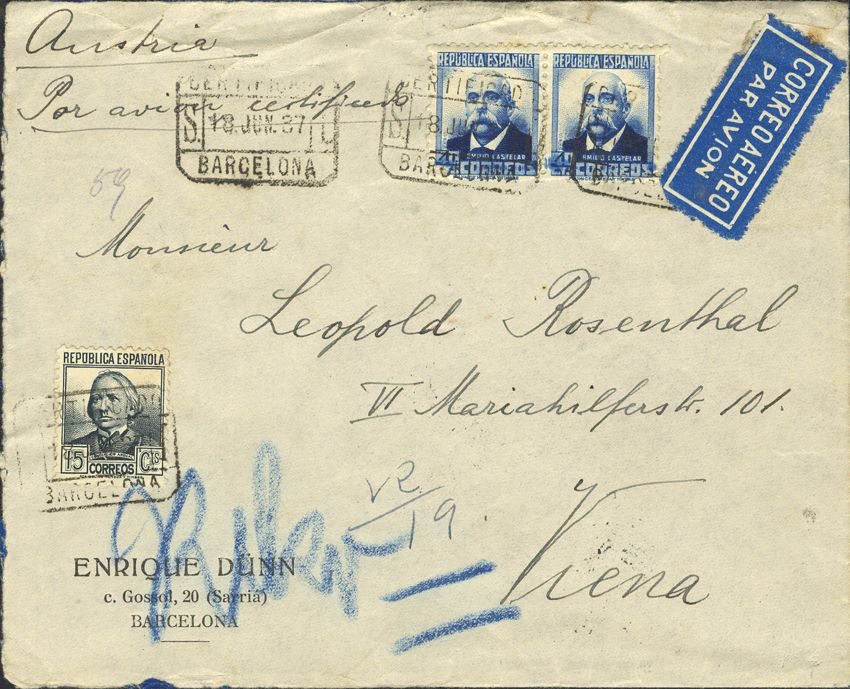 Austria
Por avion certificado
CERTIFICADO
S. 18.JUN.37
BARCELONA
REPÚBLICA ESPAÑOLA
4P
EMILIO CASTELAR
CORREOS
CERTIFICADO
S. 18 JUN
BARCELONA
REPÚBLICA ESPAÑOLA
4P
EMILIO CASTELAR
CORREOS
CORREO AEREO
PAR AVION
59
Monsieur
Leopold Rosenthal
VI Mariahilferstr. 101.
Viena
REPÚBLICA ESPAÑOLA
15 CORREOS Cts
BARCELONA
V2/19
ENRIQUE DÜNN
c. Gossol, 20 (Sarriá)
BARCELONA